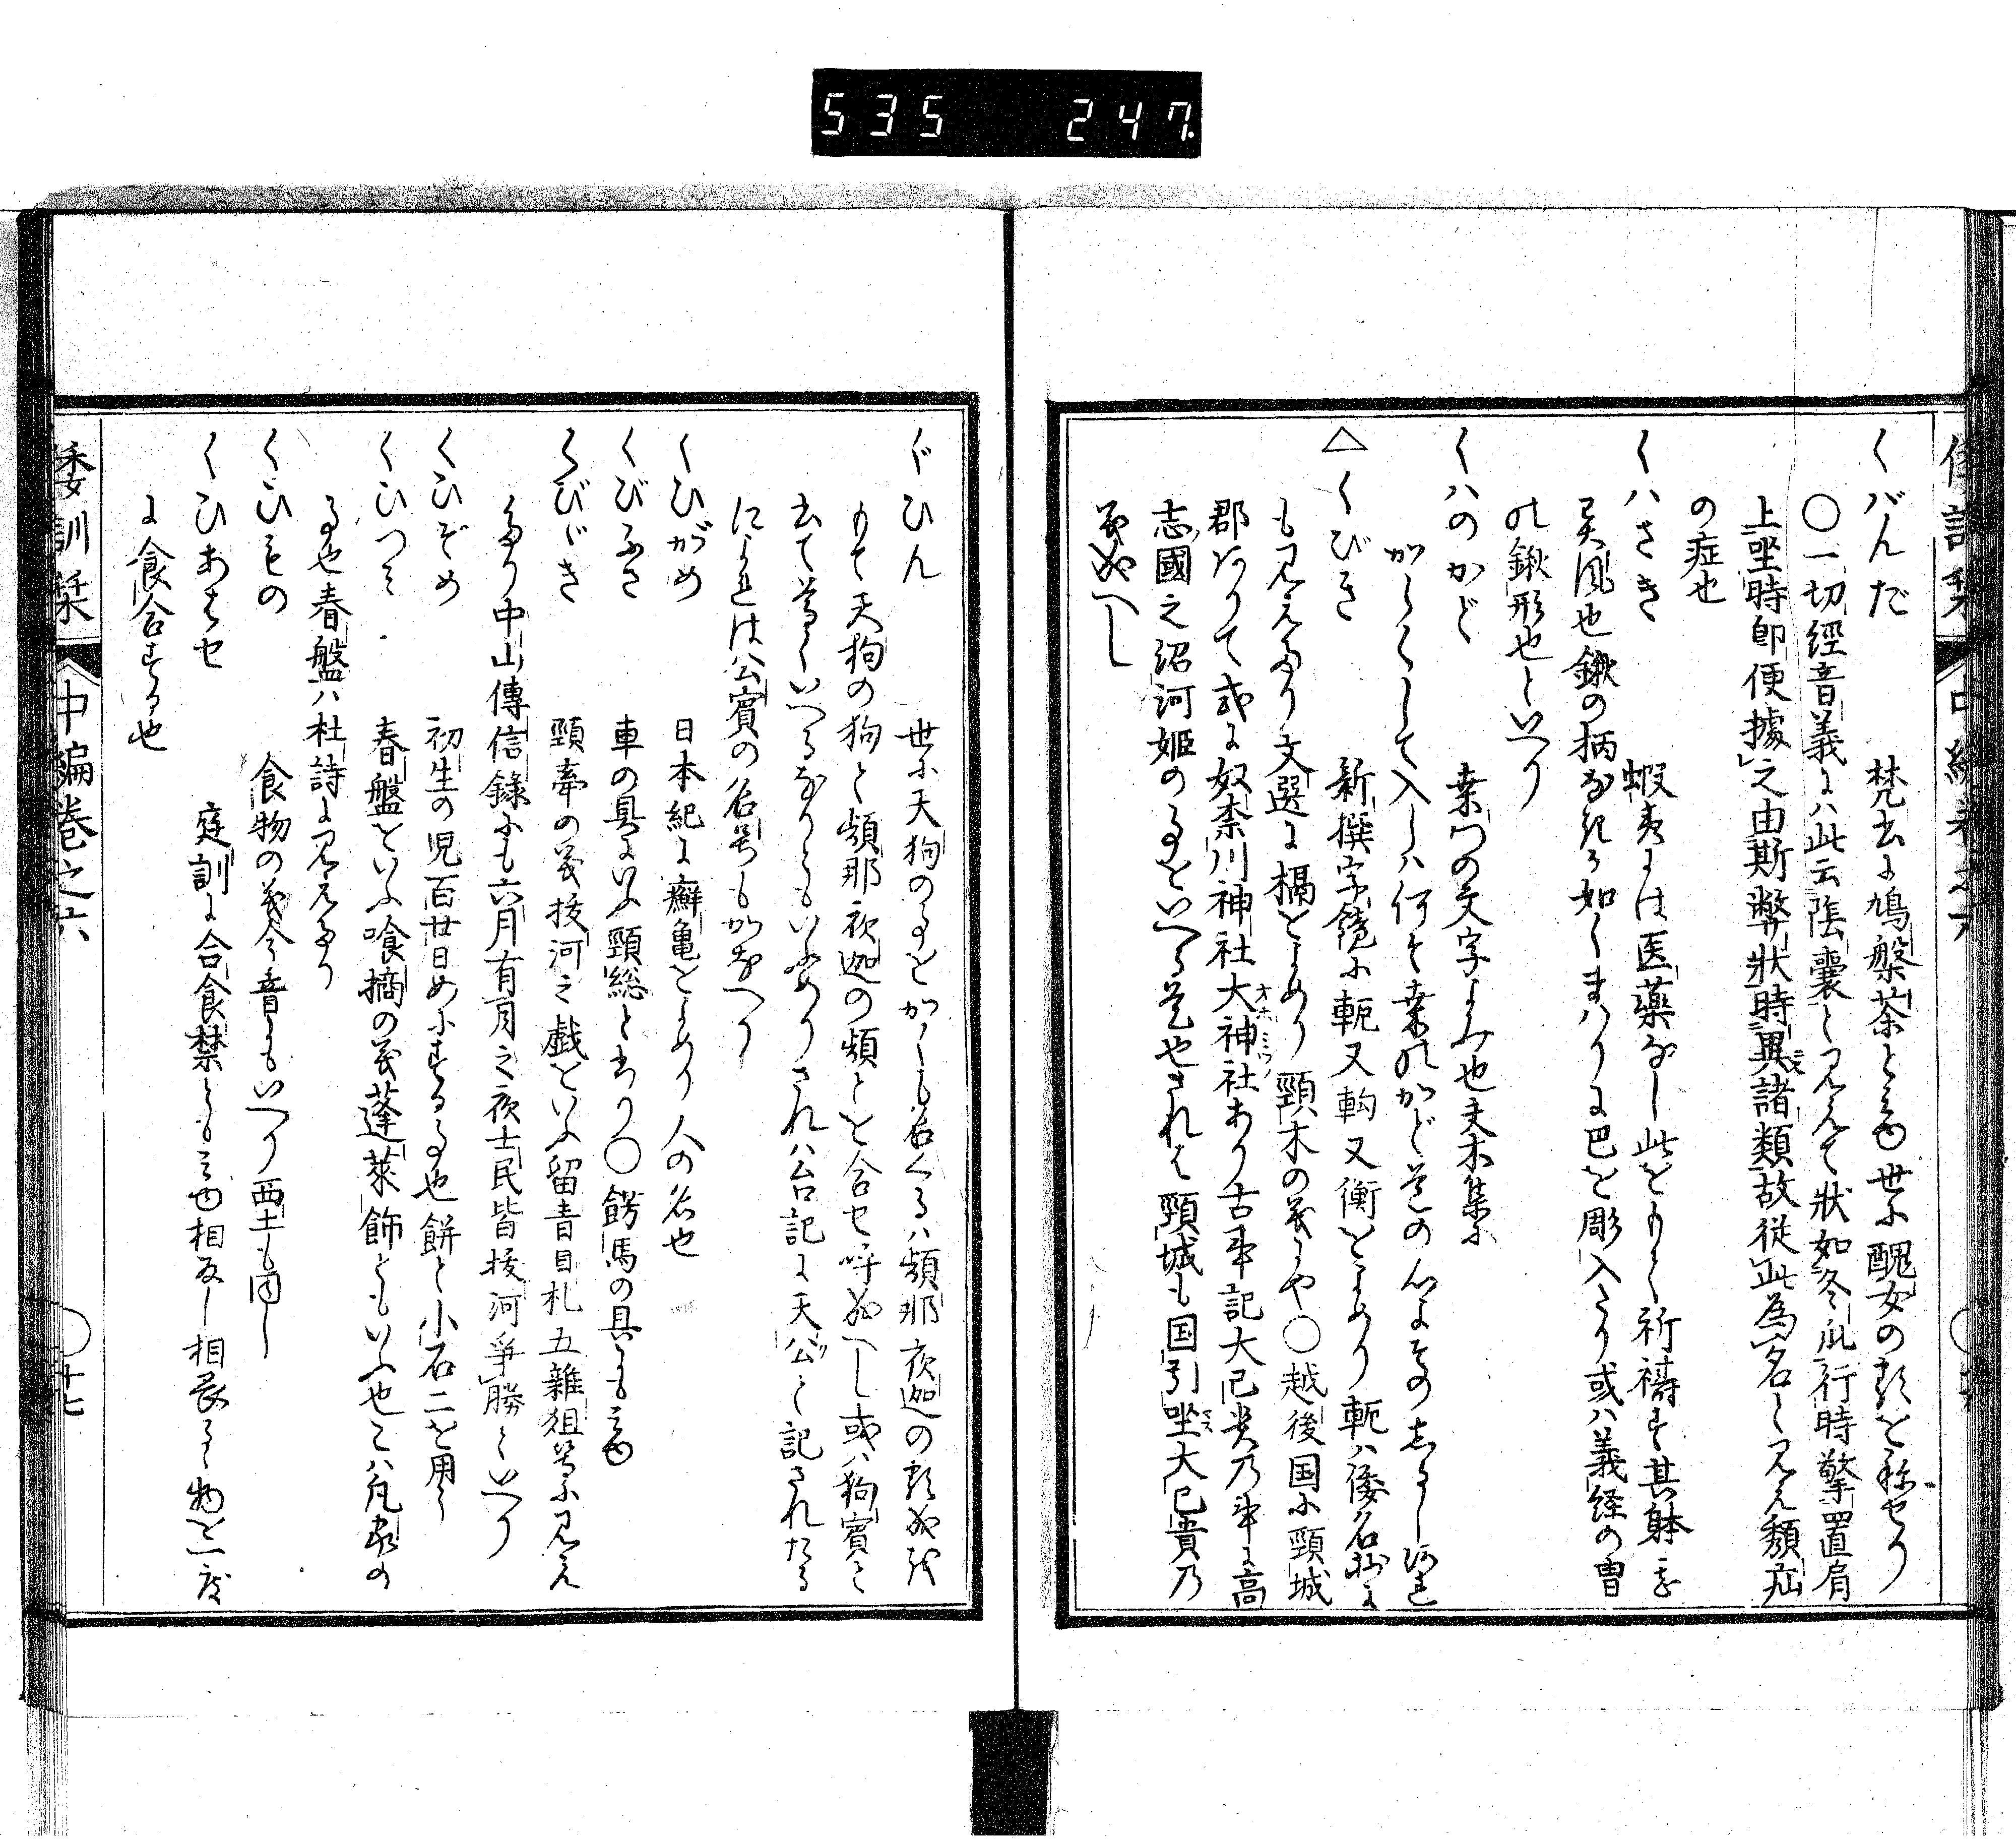 535 247.
くばんだ 梵云に鳩槃荼といへり世に醜女の顔を称せり
〇一切經音義には此云陰囊と見えて狀如冬瓜行時擎置肩
上坐時即便據之由斯弊狀時異諸類故從此為名と見え㿗疝
の症也
くハさき 蝦夷には医藥なし此をもて祈禱す其躰を
異風也鍬の柄なきか如くまハりに巴を彫入たり或ハ義経の曽
の鍬形也といへり
くハのかど 桑門の文字よみ也夫木集に
からくして入しハ何そ桑のかど
△くびき 新撰字鏡に軛又軥又衡をよめり軛ハ倭名抄に
も見えたり文選に槅をよめり頸木の義にや〇越後国に頸城
郡ありて式に奴奈川神社大神社あり古事記大己貴乃事に高
志國之沼河姫の事をいへる是也されは頸城も国引坐大己貴乃
義なるへし
ぐひん 世に天狗の事をかくも名くるハ頻那夜迦の顔なるを
もて天狗の狗と頻那夜迦の頻とを合せ呼なへし或ハ狗賓と
書て等しくいへるなりともいふめりされハ台記に天公と記されたる
によれは公賓の名号もかなへり
くひがめ 日本紀に癬亀をよめり人の名也
くびふさ 車の具にいふ頸総と書り〇餝馬の具にも云
くびびき 頸牽の義抜河之戯をいふ留青日札五雜俎等に見え
たり中山傳信錄にも六月有月之夜士民皆抜河爭勝といへり
くひぞめ 初生の児百廿日めにする事也餅と小石二を用う
くひつミ 春盤をいふ喰摘の義蓬萊飾ともいふ也こハ凡家の
事也春盤ハ杜詩に見えたり
くひもの 食物の義今音にもいへり西土も同し
くひあはせ 庭訓に合食禁とも云相反し相畏るゝ物を一度
に食合する也
倭訓栞 中編巻之六 〇 十七